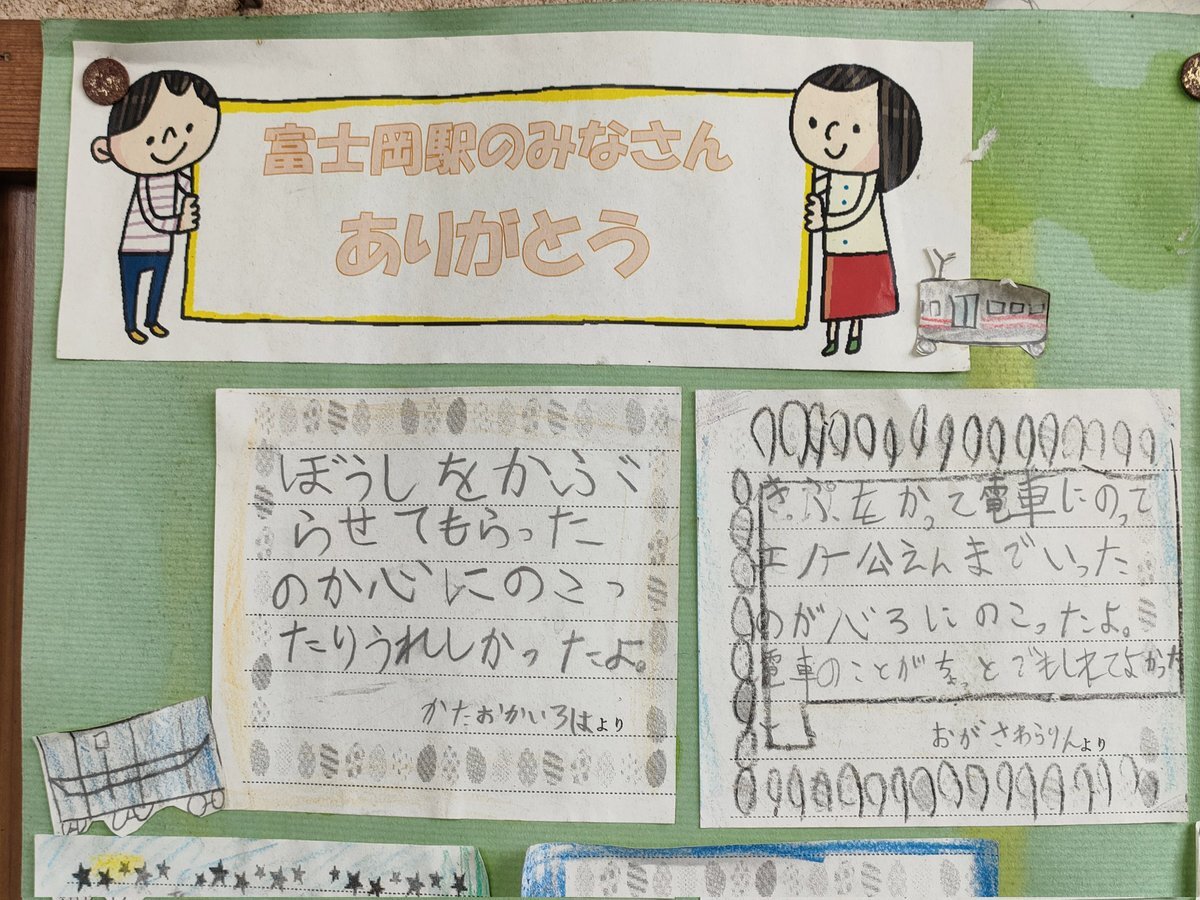 富士岡駅のみなさん
ありがとう
ぼうしをかぶ
らせてもらった
のか心にのこっ
たりうれしかったよ。
かたおかいろはより
きっぷをかって電車にのって
公えんまでいった
のが心ろにのこったよ。
電車のことがちょっとでもしれてよかった
おがさわらりんより